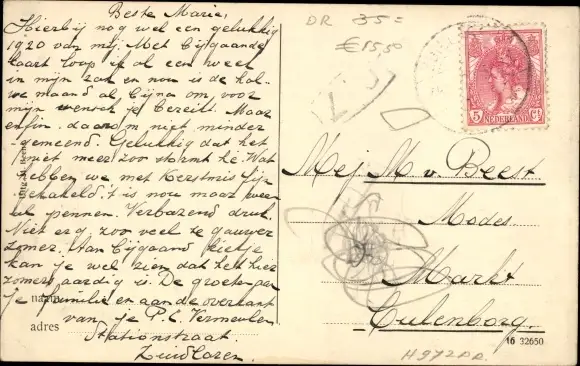 Beste Marie,
Hierbij nog wel een gelukkig
1920 van mij. Met bijgaande
kaart loop ik al een week
in mijn zak en nou is de hal-
ve maand al bijna om, voor
mijn wensch je bereikt. Maar
enfin daarom niet minder
gemeend. Gelukkig dat het
niet meer zoo stormt hè. Wat
hebben we met Kerstmis fijn
gekakeld. 't is nou maar weer
pennen. Verbazend druk.
Niet erg, zoo veel te gauwer
zomer. Aan bijgaand kietje
kan je wel zien dat het hier
zomers aardig is. De groeten aan
je familie en aan de overkant
van je P. C. Vermeulen
Stationstraat.
Zuidlaren.
naam
adres
DR 35=
€15,50
5 Ct
NEDERLAND
Mej M. v. Beest
Modes.
Markt
Culenborg.
16 32650